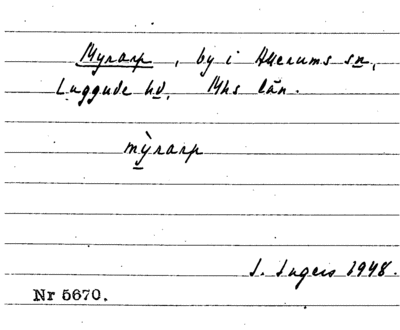 Myrarp, by i Allerums sn,
Luggude hd, Mhs län.
mỳrarp
I. Ingers 1948.
Nr 5670.